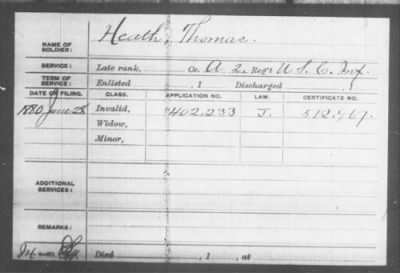 NAME OF SOLDIER: Heath, Thomas.
SERVICE: Late rank, Co. A. 2 Reg't U S. C. Inf.
TERM OF SERVICE: Enlisted , 1 Discharged , 1
DATE OF FILING. CLASS. APPLICATION NO. LAW. CERTIFICATE NO.
1880 June 28 Invalid, 402.233 J. 512.767.
Widow,
Minor,
ADDITIONAL SERVICES:
REMARKS:
Died , 1 , at